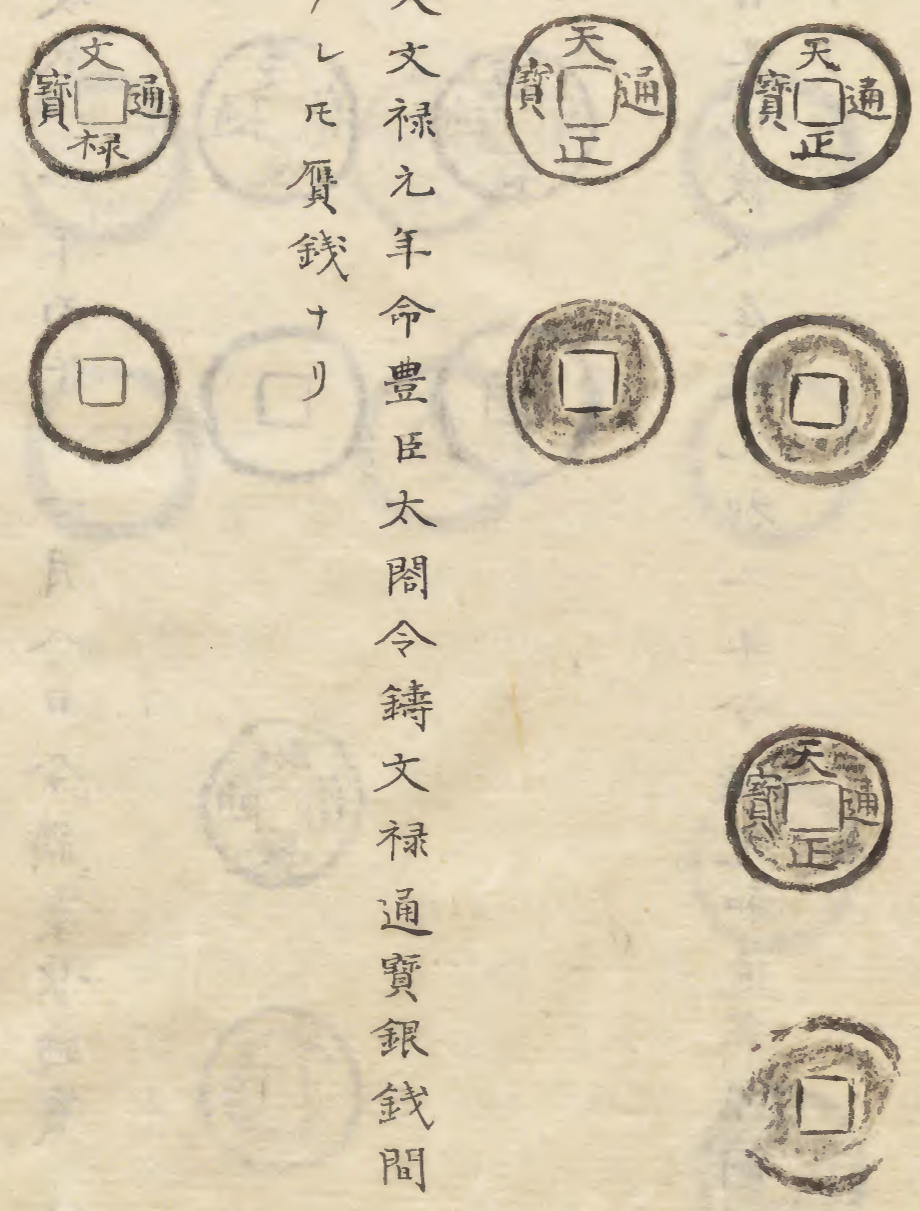 天正通寳
天正通寳
天正通寳
文禄元年命豊臣太閤令鋳文禄通寳銀銭間
レ𪜈贋銭ナリ
文禄通寳